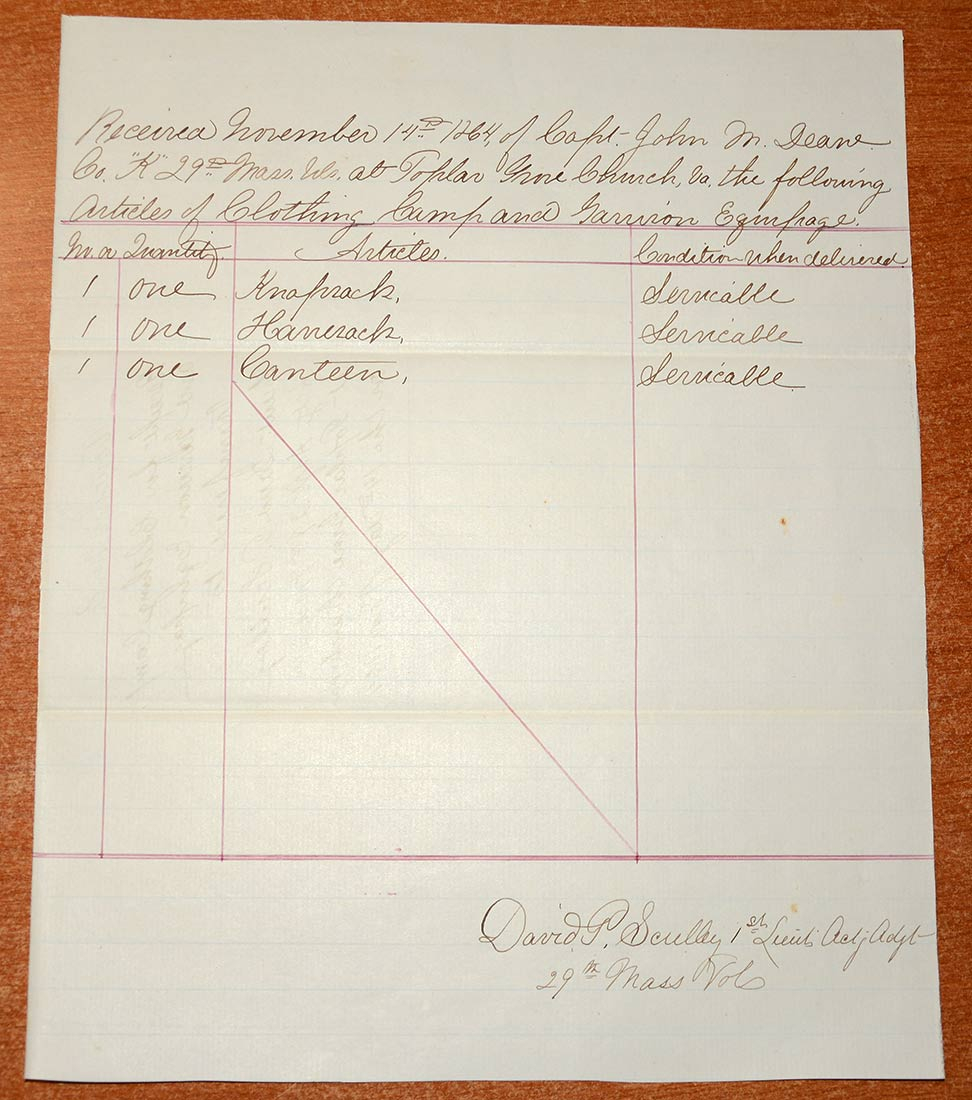 Received November 14th 1864, of Capt. John M. Deane
Co. "K" 29th Mass. Vols. at Poplar Grove Church, Va. the following
Articles of Clothing Camp and Garrison Equipage.
No. or Quantity. Articles. Condition when delivered.
1 one Knapsack, Servicable
1 one Haversack, Servicable
1 one Canteen, Servicable
David P. Scully 1st Lieut Actg Adjt
29th Mass Vols